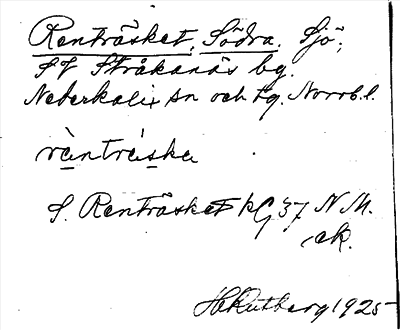 Renträsket, Södra. Sjö;
SV Stråkanäs by.
Nederkalix sn och tg. Norrb. l.
ràntrǽska
S. Renträsket KG 37 N M.
ek.
1925